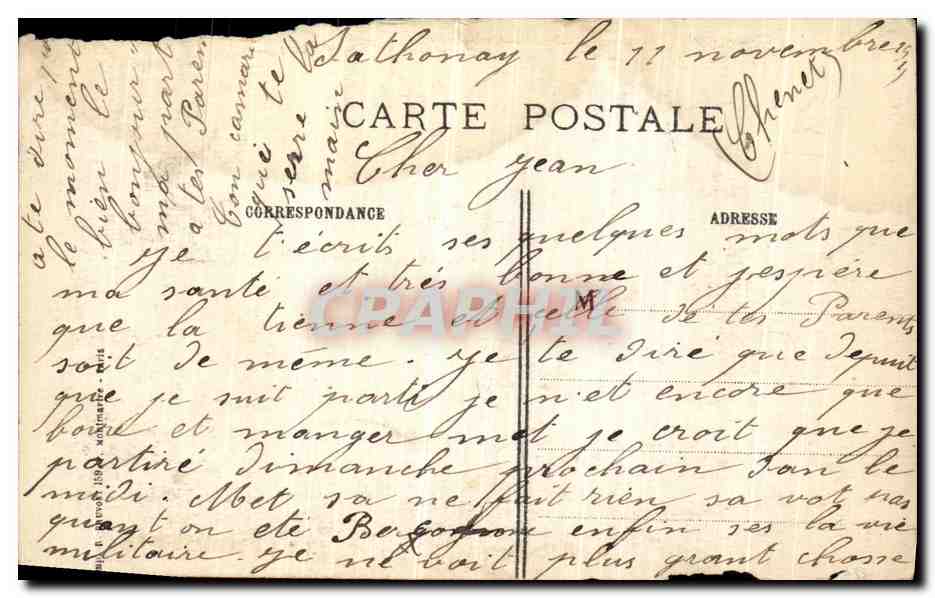 Sathonay le 11 novembre
CARTE POSTALE
Cher Jean
CORRESPONDANCE
ADRESSE
Je t'écrit ses quelques mots que
ma santé et trés bonne et j'espére
M
que la tienne et celle de tes Parents
soit de méme. Je te diré que depuit
que je suit parti je n'et encore que
boire et manger met je croit que je
partiré dimanche prochain dan le
midi. Met sa ne fait rien sa vot pas
quant on eté enfin ses la vie
militaire. Je ne voit plus grant chosse
a te dire
le moment
bien le
bonjour
ma part
a tes Paren
Ton camara
qui te
serre la
main
Thenet
CPARPHIL